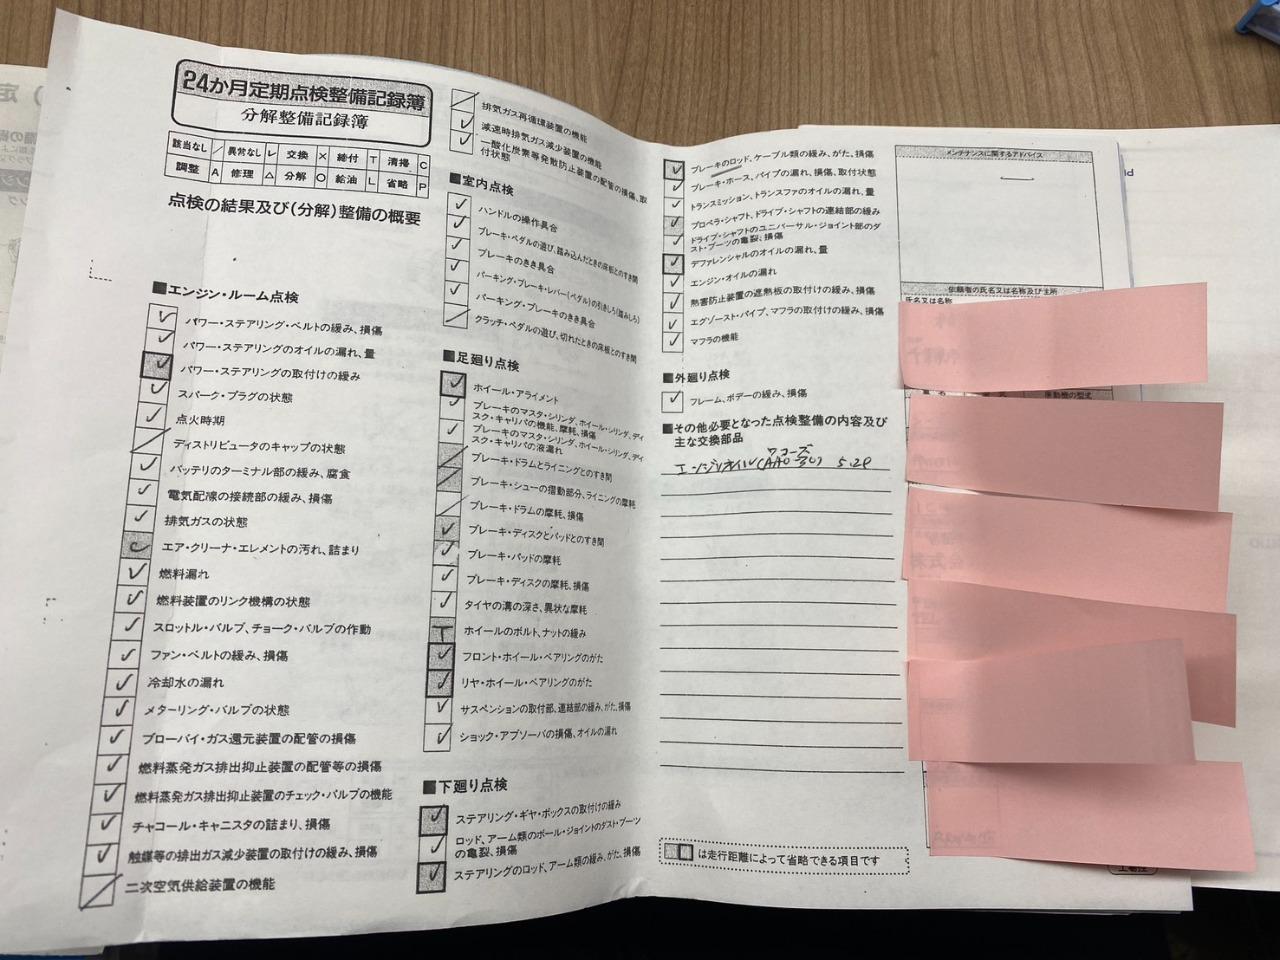 24か月定期点検整備記録簿
分解整備記録簿
該当なし / 異常なし レ 交換 × 締付 T 清掃 C
調整 A 修理 △ 分解 ○ 給油 L 省略 P
点検の結果及び(分解)整備の概要
■エンジン・ルーム点検
パワー・ステアリング・ベルトの緩み、損傷
パワー・ステアリングのオイルの漏れ、量
パワー・ステアリングの取付けの緩み
スパーク・プラグの状態
点火時期
ディストリビュータのキャップの状態
バッテリのターミナル部の緩み、腐食
電気配線の接続部の緩み、損傷
排気ガスの状態
エア・クリーナ・エレメントの汚れ、詰まり
燃料漏れ
燃料装置のリンク機構の状態
スロットル・バルブ、チョーク・バルブの作動
ファン・ベルトの緩み、損傷
冷却水の漏れ
メターリング・バルブの状態
ブローバイ・ガス還元装置の配管の損傷
燃料蒸発ガス排出抑止装置の配管等の損傷
燃料蒸発ガス排出抑止装置のチェック・バルブの機能
チャコール・キャニスタの詰まり、損傷
触媒等の排出ガス減少装置の取付けの緩み、損傷
二次空気供給装置の機能
排気ガス再循環装置の機能
減速時排気ガス減少装置の機能
一酸化炭素等発散防止装置の配管の損傷、取
付状態
■室内点検
ハンドルの操作具合
ブレーキ・ペダルの遊び、踏み込んだときの床板とのすき間
ブレーキのきき具合
パーキング・ブレーキ・レバー(ペダル)の引きしろ(踏みしろ)
パーキング・ブレーキのきき具合
クラッチ・ペダルの遊び、切れたときの床板とのすき間
■足廻り点検
ホイール・アライメント
ブレーキのマスタ・シリンダ、ホイール・シリンダ、ディ
スク・キャリパの機能、摩耗、損傷
ブレーキのマスタ・シリンダ、ホイール・シリンダ、ディ
スク・キャリパの液漏れ
ブレーキ・ドラムとライニングとのすき間
ブレーキ・シューの摺動部分、ライニングの摩耗
ブレーキ・ドラムの摩耗、損傷
ブレーキ・ディスクとパッドとのすき間
ブレーキ・パッドの摩耗
ブレーキ・ディスクの摩耗、損傷
タイヤの溝の深さ、異状な摩耗
ホイールのボルト、ナットの緩み
フロント・ホイール・ベアリングのがた
リヤ・ホイール・ベアリングのがた
サスペンションの取付部、連結部の緩み、がた、損傷
ショック・アブソーバの損傷、オイルの漏れ
■下廻り点検
ステアリング・ギヤ・ボックスの取付けの緩み
ロッド、アーム類のボール・ジョイントのダスト・ブーツ
の亀裂、損傷
ステアリングのロッド、アーム類の緩み、がた、損傷
ブレーキのロッド、ケーブル類の緩み、がた、損傷
ブレーキ・ホース、パイプの漏れ、損傷、取付状態
トランスミッション、トランスファのオイルの漏れ、量
プロペラ・シャフト、ドライブ・シャフトの連結部の緩み
ドライブ・シャフトのユニバーサル・ジョイント部のダ
スト・ブーツの亀裂、損傷
デファレンシャルのオイルの漏れ、量
エンジン・オイルの漏れ
熱害防止装置の遮熱板の取付けの緩み、損傷
エグゾースト・パイプ、マフラの取付けの緩み、損傷
マフラの機能
■外廻り点検
フレーム、ボデーの緩み、損傷
■その他必要となった点検整備の内容及び
主な交換部品
エンジンオイル 5.2ℓ
は走行距離によって省略できる項目です
メンテナンスに関するアドバイス
依頼者の氏名又は名称及び住所
氏名又は名称
原動機の型式